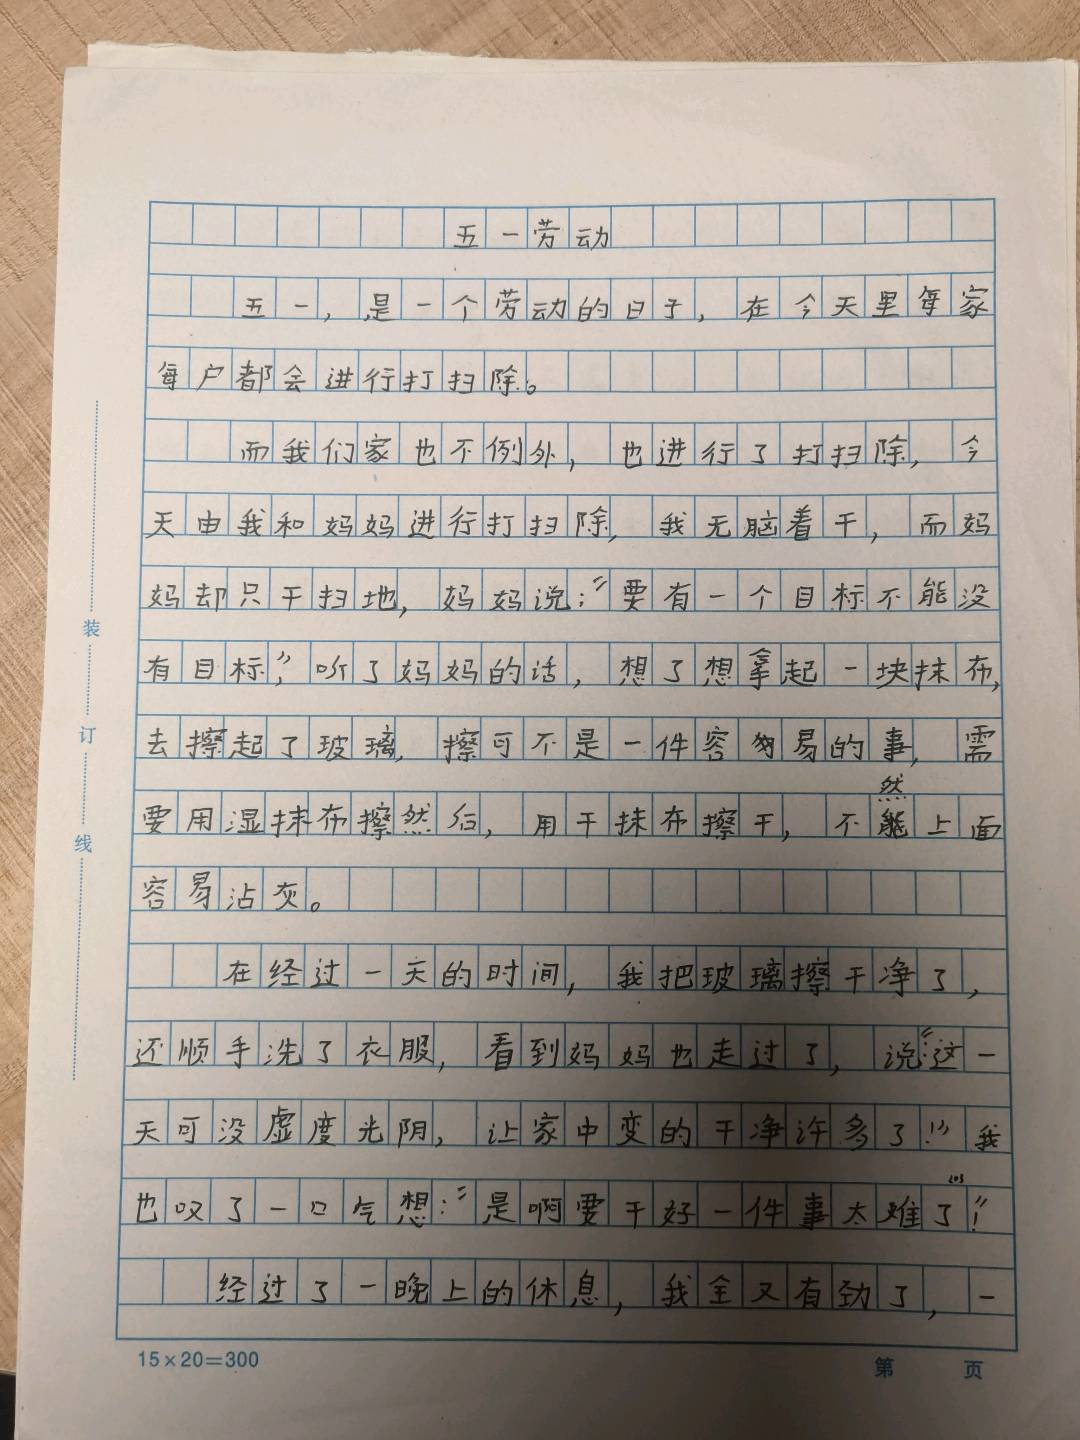 五一劳动
五一，是一个劳动的日子，在今天里每家
每户都会进行打扫除。
而我们家也不例外，也进行了打扫除，今
天由我和妈妈进行打扫除，我无脑着干，而妈
妈却只干扫地，妈妈说：“要有一个目标不能没
有目标”，听了妈妈的话，想了想拿起一块抹布，
去擦起了玻璃，擦可不是一件容易的事，需
要用湿抹布擦然后，用干抹布擦干，不然上面
容易沾灰。
在经过一天的时间，我把玻璃擦干净了，
还顺手洗了衣服，看到妈妈也走过了，说：“这一
天可没虚度光阴，让家中变的干净许多了！”我
也叹了一口气想：“是啊要干好一件事太难了！”
经过了一晚上的休息，我全又有劲了，一
装
订
线
15×20=300
第 页